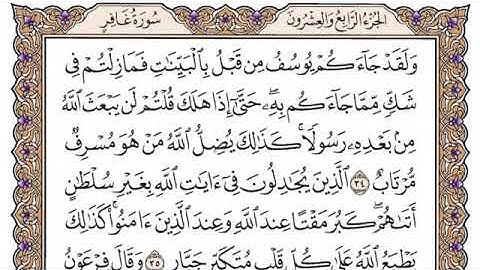 الجزء الرابع والعشرون سورة غافر
وَلَقَدْ جَآءَكُمْ يُوسُفُ مِن قَبْلُ بِٱلْبَيِّنَٰتِ فَمَازِلْتُمْ فِى
شَكٍّ مِّمَّا جَآءَكُم بِهِۦ حَتَّىٰٓ إِذَا هَلَكَ قُلْتُمْ لَن يَبْعَثَ ٱللَّهُ
مِنۢ بَعْدِهِۦ رَسُولًا كَذَٰلِكَ يُضِلُّ ٱللَّهُ مَنْ هُوَ مُسْرِفٌ
مُّرْتَابٌ ٣٤ ٱلَّذِينَ يُجَٰدِلُونَ فِىٓ ءَايَٰتِ ٱللَّهِ بِغَيْرِ سُلْطَٰنٍ
أَتَىٰهُمْ كَبُرَ مَقْتًا عِندَ ٱللَّهِ وَعِندَ ٱلَّذِينَ ءَامَنُوا۟ كَذَٰلِكَ
يَطْبَعُ ٱللَّهُ عَلَىٰ كُلِّ قَلْبِ مُتَكَبِّرٍ جَبَّارٍ ٣٥ وَقَالَ فِرْعَوْنُ